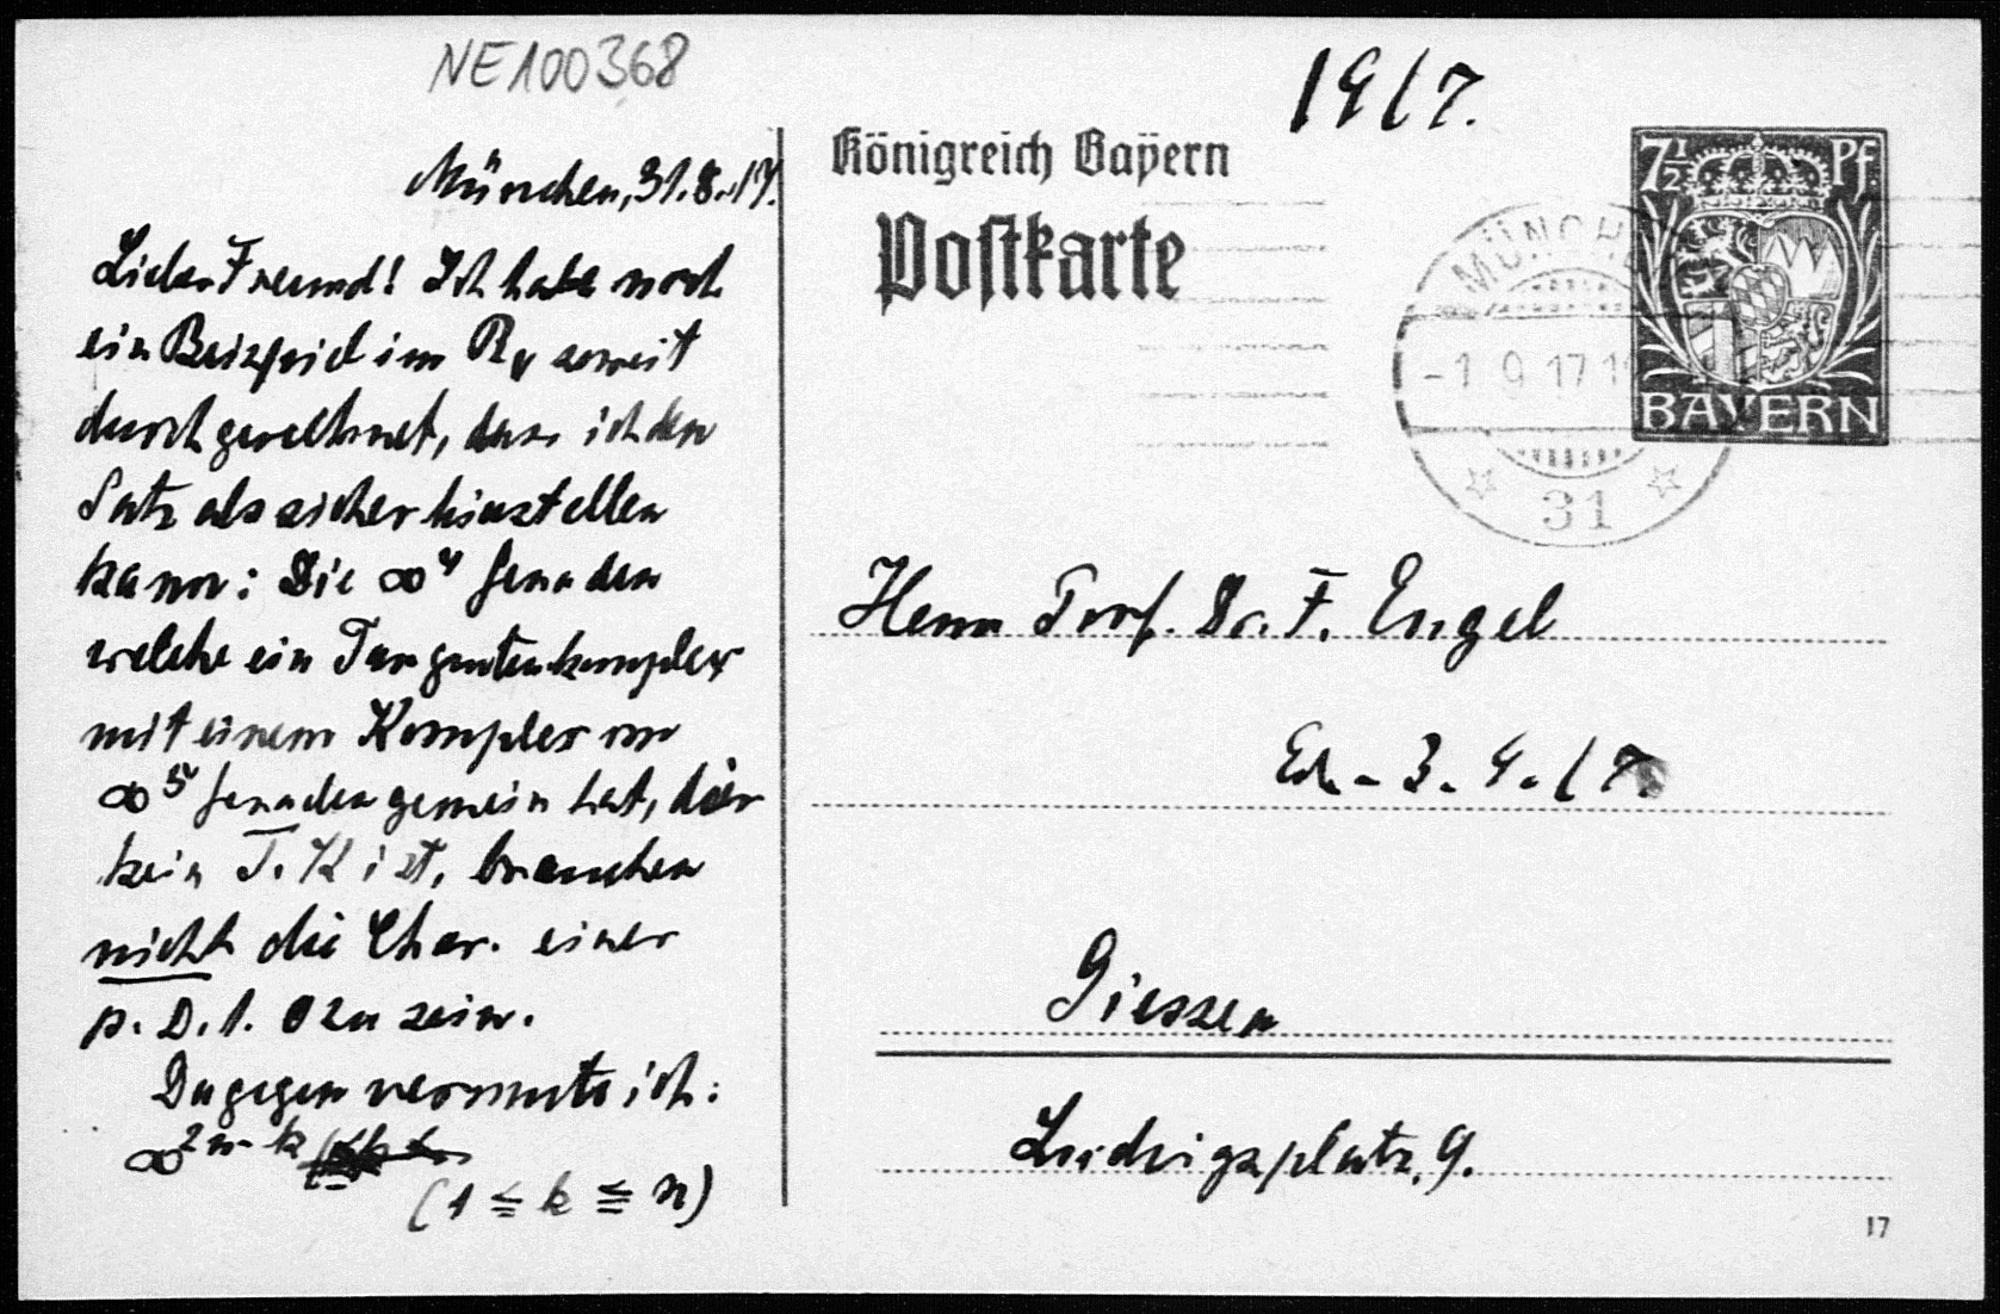 NE100368
1917.
München, 31.8.17.
Lieber Freund! Ich habe noch
ein Beispiel im R₄ soweit
durchgerechnet, dass ich den
Satz als sicher hinstellen
kann: Die ∞⁴ Geraden
welche ein Tangentenkomplex
mit einem Komplex von
∞⁵ Geraden gemein hat, der
kein T.K ist, brauchen
nicht die Char. einer
p. D. 1. O zu sein.
Dagegen vermute ich:
∞²ⁿ⁻ᵏ
(1 ≦ k ≦ n)
Königreich Bayern
Postkarte
7½ Pf.
BAYERN
MÜNCHEN
-1 9 17 1
31
Herrn Prof. Dr. F. Engel
Eh. - 3. 9. 17.
Giessen
Ludwigsplatz, 9.
17